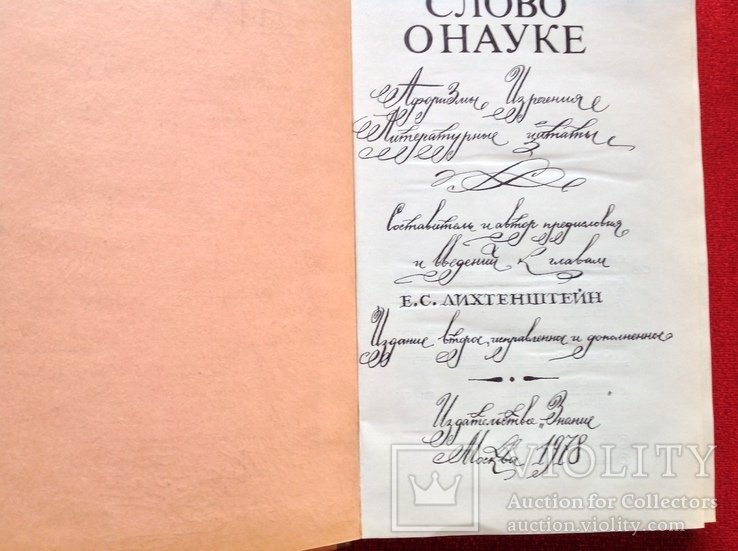 СЛОВО
О НАУКЕ
Афоризмы. Изречения.
Литературные цитаты.
Составитель и автор предисловия
и введений к главам
Е.С. ЛИХТЕНШТЕЙН
Издание второе, исправленное и дополненное
Издательство „Знание“
Москва 1978
VIOLITY
Auction for Collectors
auction.violity.com